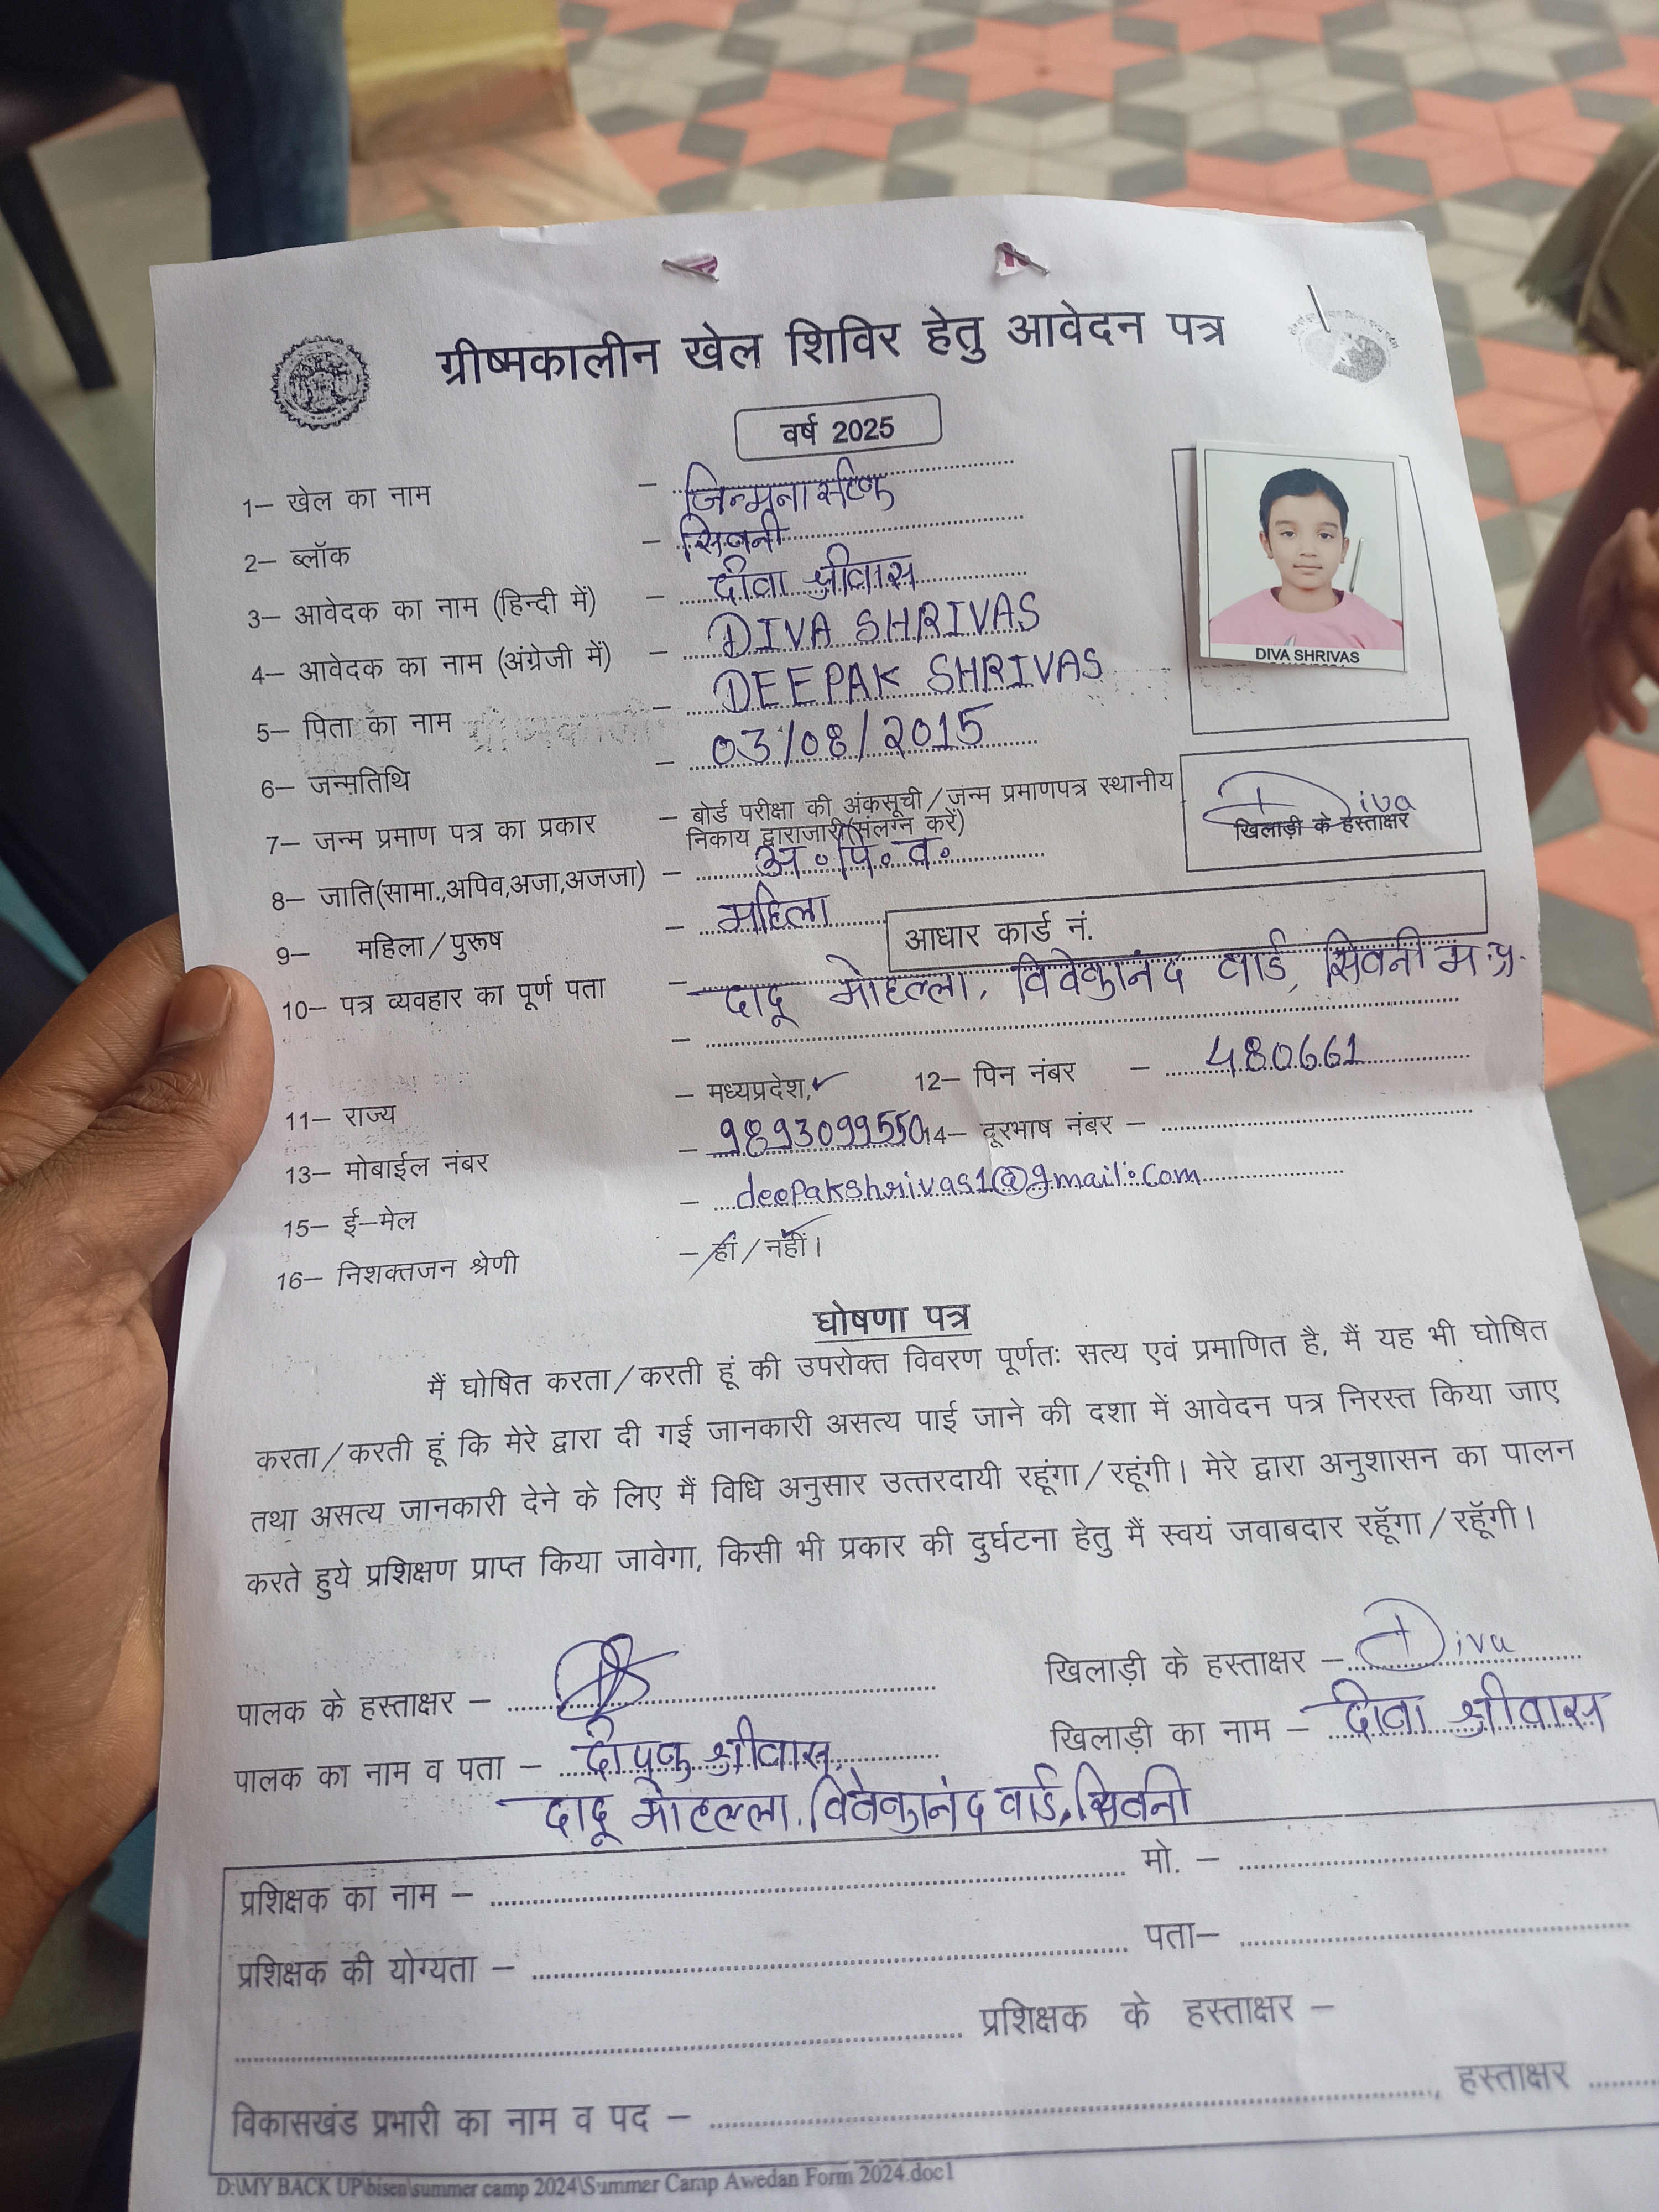 ग्रीष्मकालीन खेल शिविर हेतु आवेदन पत्र
वर्ष 2025
1– खेल का नाम – जिन्मनास्टिक
2– ब्लॉक – सिवनी
3– आवेदक का नाम (हिन्दी में) – दीवा श्रीवास
4– आवेदक का नाम (अंग्रेजी में) – DIVA SHRIVAS
DIVA SHRIVAS
5– पिता का नाम – DEEPAK SHRIVAS
6– जन्मतिथि – 03/08/2015
7– जन्म प्रमाण पत्र का प्रकार – बोर्ड परीक्षा की अंकसूची/जन्म प्रमाणपत्र स्थानीय
निकाय द्वाराजारी(संलग्न करें)
Diva
खिलाड़ी के हस्ताक्षर
8– जाति(सामा.,अपिव,अजा,अजजा) – अ॰पि॰व॰
9– महिला/पुरूष – महिला
आधार कार्ड नं.
10– पत्र व्यवहार का पूर्ण पता – दादू मोहल्ला, विवेकानंद वार्ड, सिवनी म.प्र.
11– राज्य – मध्यप्रदेश, 12– पिन नंबर – 480661
13– मोबाईल नंबर – 9893099550 14– दूरभाष नंबर –
15– ई–मेल – deepakshrivas1@gmail.com
16– निशक्तजन श्रेणी – हां/नहीं।
घोषणा पत्र
मैं घोषित करता/करती हूं की उपरोक्त विवरण पूर्णतः सत्य एवं प्रमाणित है, मैं यह भी घोषित
करता/करती हूं कि मेरे द्वारा दी गई जानकारी असत्य पाई जाने की दशा में आवेदन पत्र निरस्त किया जाए
तथा असत्य जानकारी देने के लिए मैं विधि अनुसार उत्तरदायी रहूंगा/रहूंगी। मेरे द्वारा अनुशासन का पालन
करते हुये प्रशिक्षण प्राप्त किया जावेगा, किसी भी प्रकार की दुर्घटना हेतु मैं स्वयं जवाबदार रहूॅगा/रहूॅगी।
पालक के हस्ताक्षर – खिलाड़ी के हस्ताक्षर – Diva
पालक का नाम व पता – दीपक श्रीवास, खिलाड़ी का नाम – दीवा श्रीवास
दादू मोहल्ला, विवेकानंद वार्ड, सिवनी
प्रशिक्षक का नाम – मो. –
प्रशिक्षक की योग्यता – पता–
प्रशिक्षक के हस्ताक्षर –
विकासखंड प्रभारी का नाम व पद – , हस्ताक्षर
D:\MY BACK UP\bisen\summer camp 2024\Summer Camp Awedan Form 2024.doc1